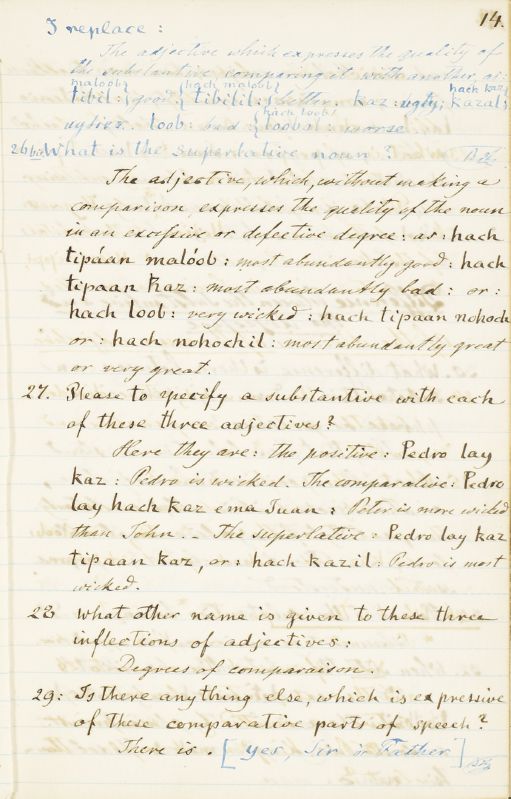 14.
I replace:
The adjective which expresses the quality of
the substantive comparing it with another, as:
maloób} {hach maloób} hach kaz
tibil: good {tibilil: better. kaz: ugly; kazal:
{hach loob}
uglier. loob: bad {loobol: worse
26bis What is the superlative noun?
The adjective, which, without making a
comparison, expresses the quality of the noun
in an excessive or defective degree: as: hach
tipáan malóob: most abundantly good: hach
tipaan kaz: most abundantly bad: or:
hach loob: very wicked: hach tipaan nohoch
or: hach nohochil: most abundantly great
or very great.
27. Please to specify a substantive with each
of these three adjectives?
Here they are: the positive: Pedro lay
kaz: Pedro is wicked. The comparative: Pedro
lay hach kaz ema Juan: Peter is more wicked
than John. - The superlative: Pedro lay kaz
tipaan kaz, or: hach kazil: Pedro is most
wicked.
28 What other name is given to these three
inflections of adjectives:
Degrees of comparaison.
29: Is there any thing else, which is expressive
of these comparative parts of speech?
There is. [yes, Sir or Father]